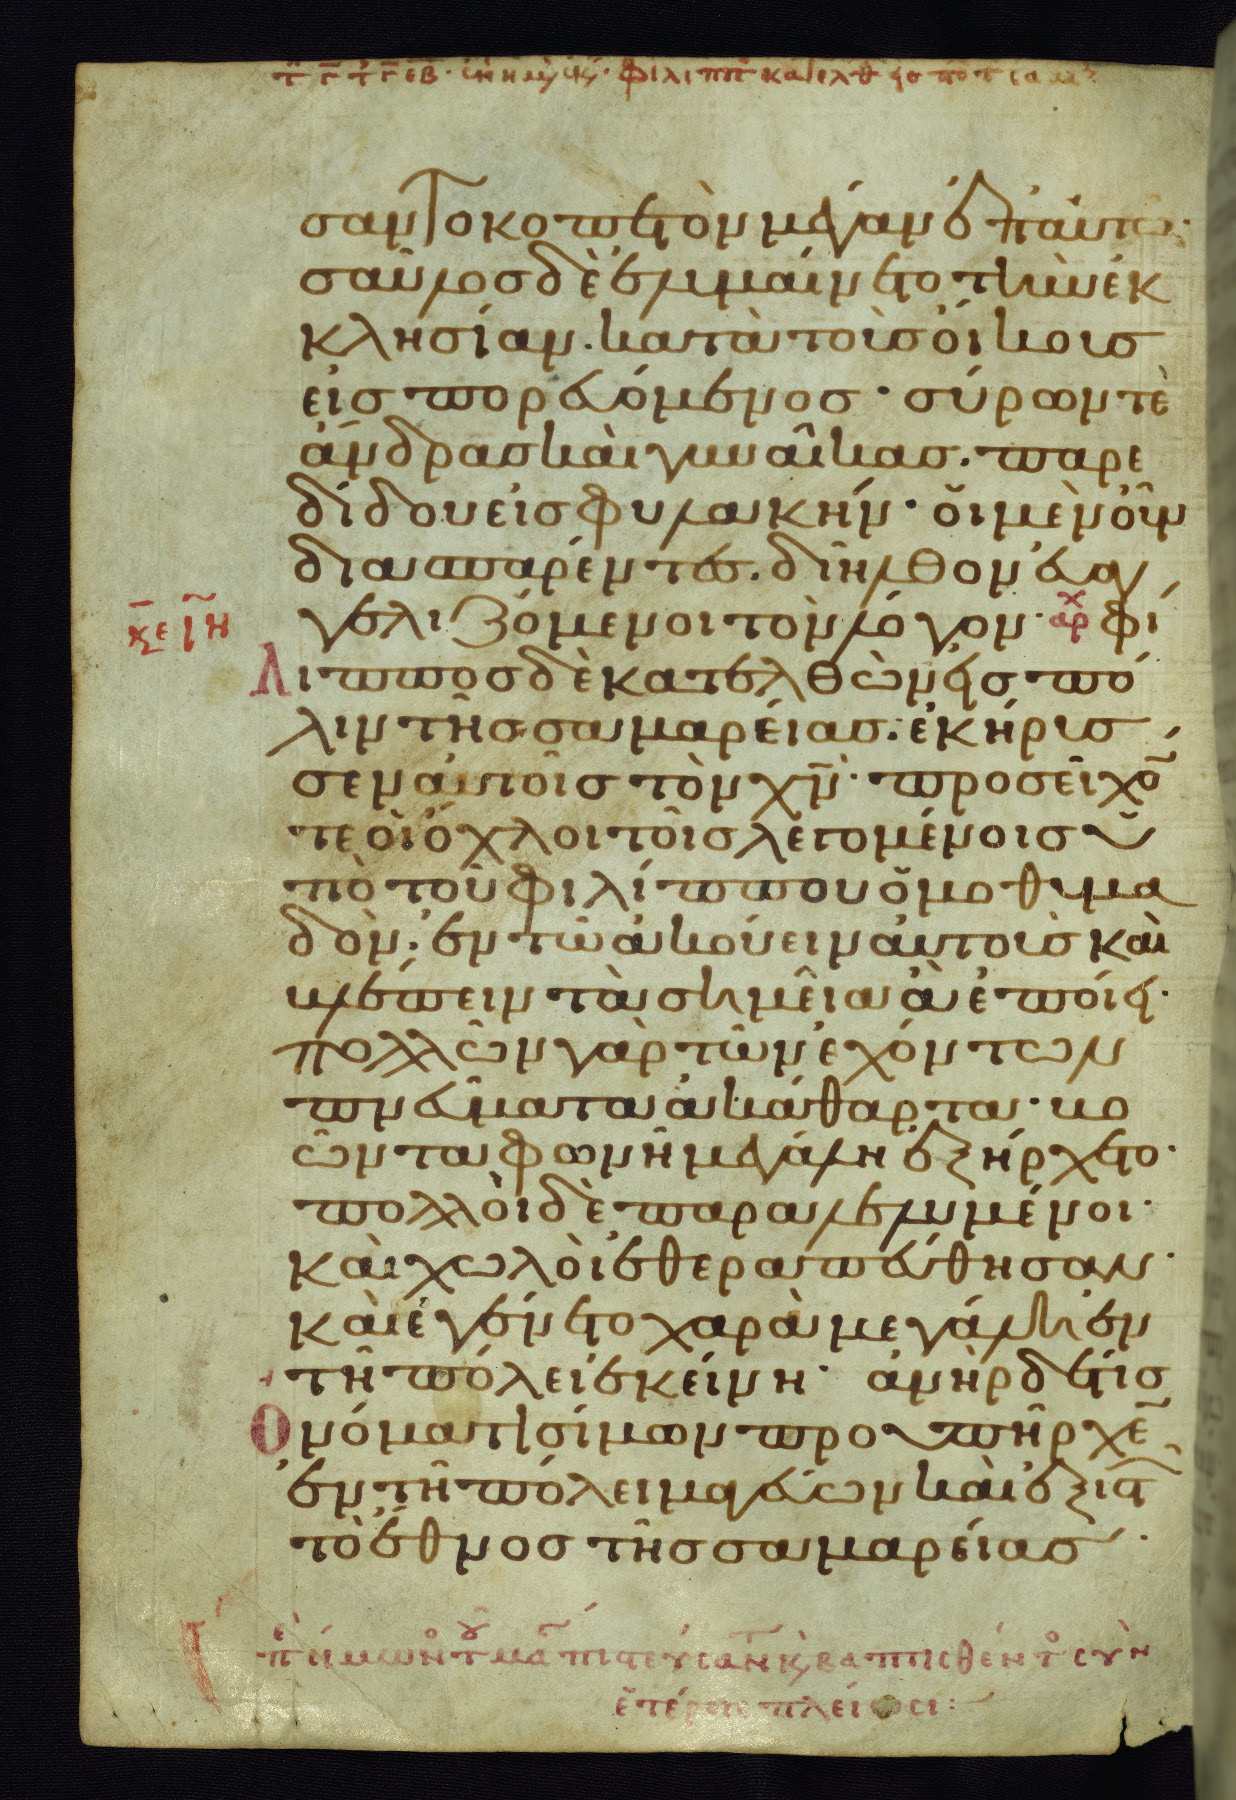 σαν κοπετὸν μέγαν ἐπ' αὐτῶ·
σαῦλος δὲ ἐλυμαίνετο τὴν ἐκ
κλησίαν. κατὰ τοὺσ οἴκους
εἰσπορευόμενος· σύρων τὲ
ἄνδρας καὶ γυναῖκας. παρε
δίδου εἰς φυλακήν· οἱ μὲν οὖν
διασπαρέντες. διῆλθον εὐαγ
γελιζόμενοι τὸν λόγον· αρχ φί
λιππος δὲ κατελθὼν εἰς πό
λιν τῆς σαμαρείας. ἐκήρυσ
σεν αὐτοῖς τὸν χν· προσεῖχον
τε οἱ ὄχλοι τοῖς λεγομένοις ὑ
πὸ τοῦ φιλίππου ὁμοθυμα
δὸν· ἐν τῶ ἀκούειν αὐτοὺς καὶ
βλέπειν τὰ σημεῖα ἃ ἐποίει·
πολλῶν γὰρ τῶν ἐχόντων
πνεύματα ἀκάθαρτα· βο
ῶντα φωνῆ μεγάλη ἐξήρχετο·
πολλοὶ δὲ παραλελυμένοι·
καὶ χωλοὶ ἐθεραπεύθησαν·
καὶ ἐγένετο χαρὰ μεγάλη ἐν
τῆ πόλει ἐκείνη· ἀνὴρ δέ τις
ὀνόματι σίμων προυπῆρχεν
ἐν τῆ πόλει μαγεύων καὶ ἐξιστῶν
τὸ ἔθνος τῆς σαμαρείας·